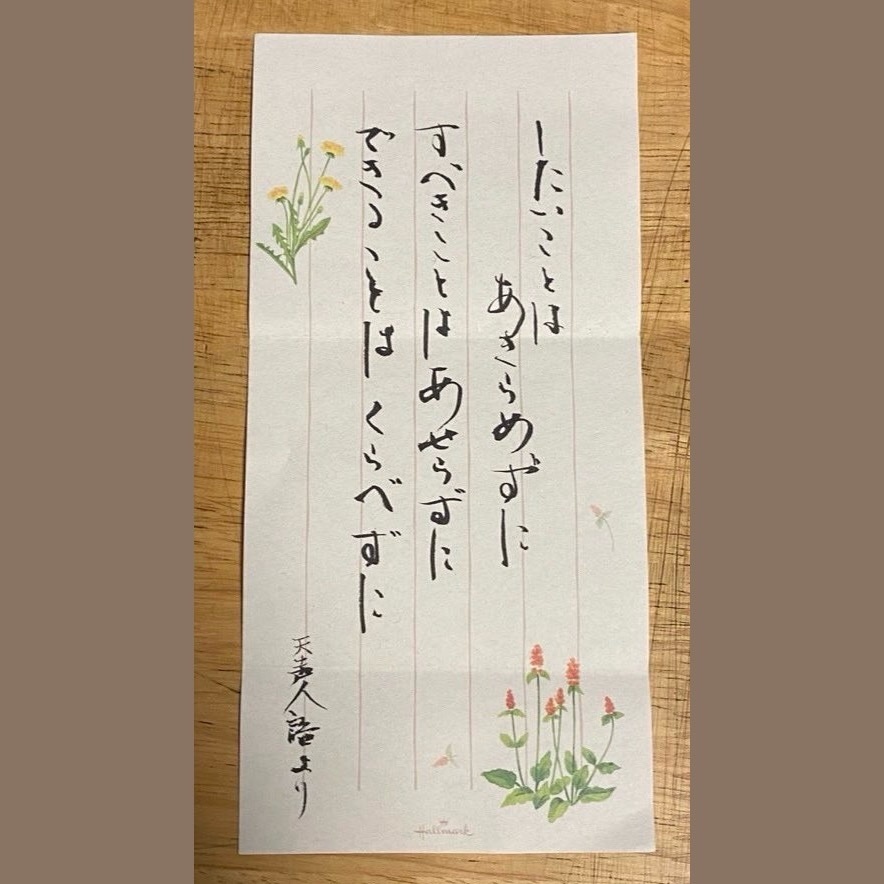 したいことは
あきらめずに
すべきことは あせらずに
できることは くらべずに
天声人語より
Hallmark